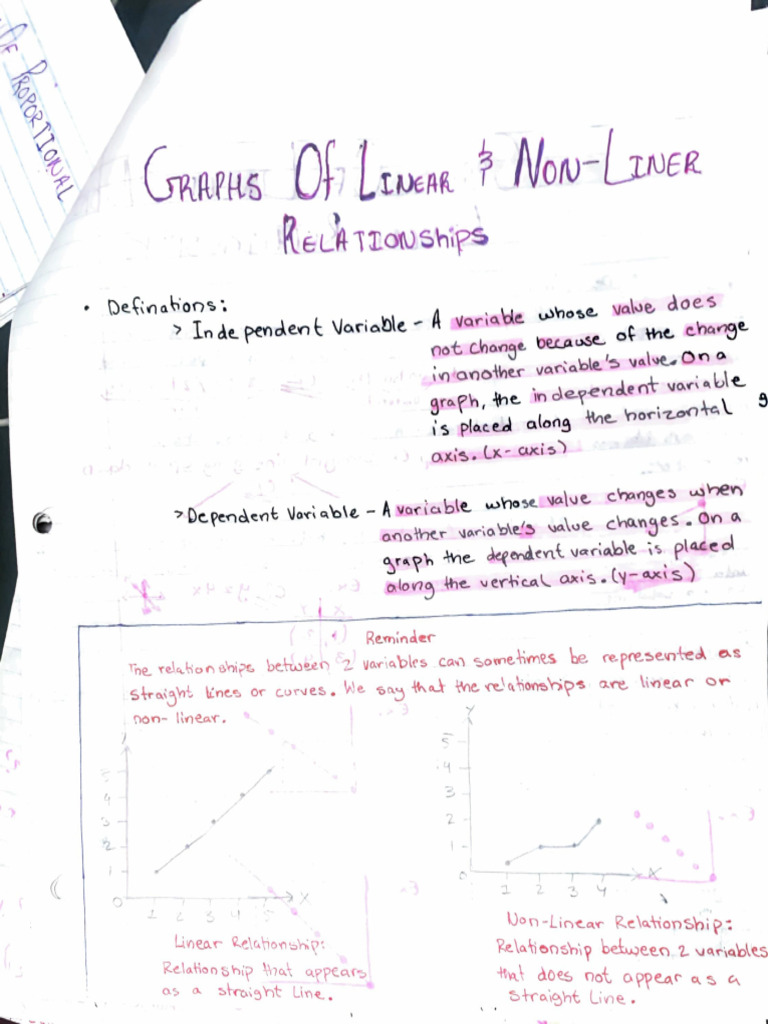 Of Proportional
Graphs Of Linear & Non-Liner
Relationships
• Definations:
> Independent Variable - A variable whose value does
not change because of the change
in another variable's value. On a
graph, the independent variable
is placed along the horizontal
axis. (x-axis)
> Dependent Variable - A variable whose value changes when
another variable's value changes. On a
graph the dependent variable is placed
along the vertical axis. (y-axis)
Reminder
The relationships between 2 variables can sometimes be represented as
straight lines or curves. We say that the relationships are linear or
non-linear.
5
4
3
2
1
0
1 2 3 4 5 X
Linear Relationship:
Relationship that appears
as a straight Line.
Y
5
4
3
2
1
0
1 2 3 4 X
Non-Linear Relationship:
Relationship between 2 variables
that does not appear as a
straight Line.